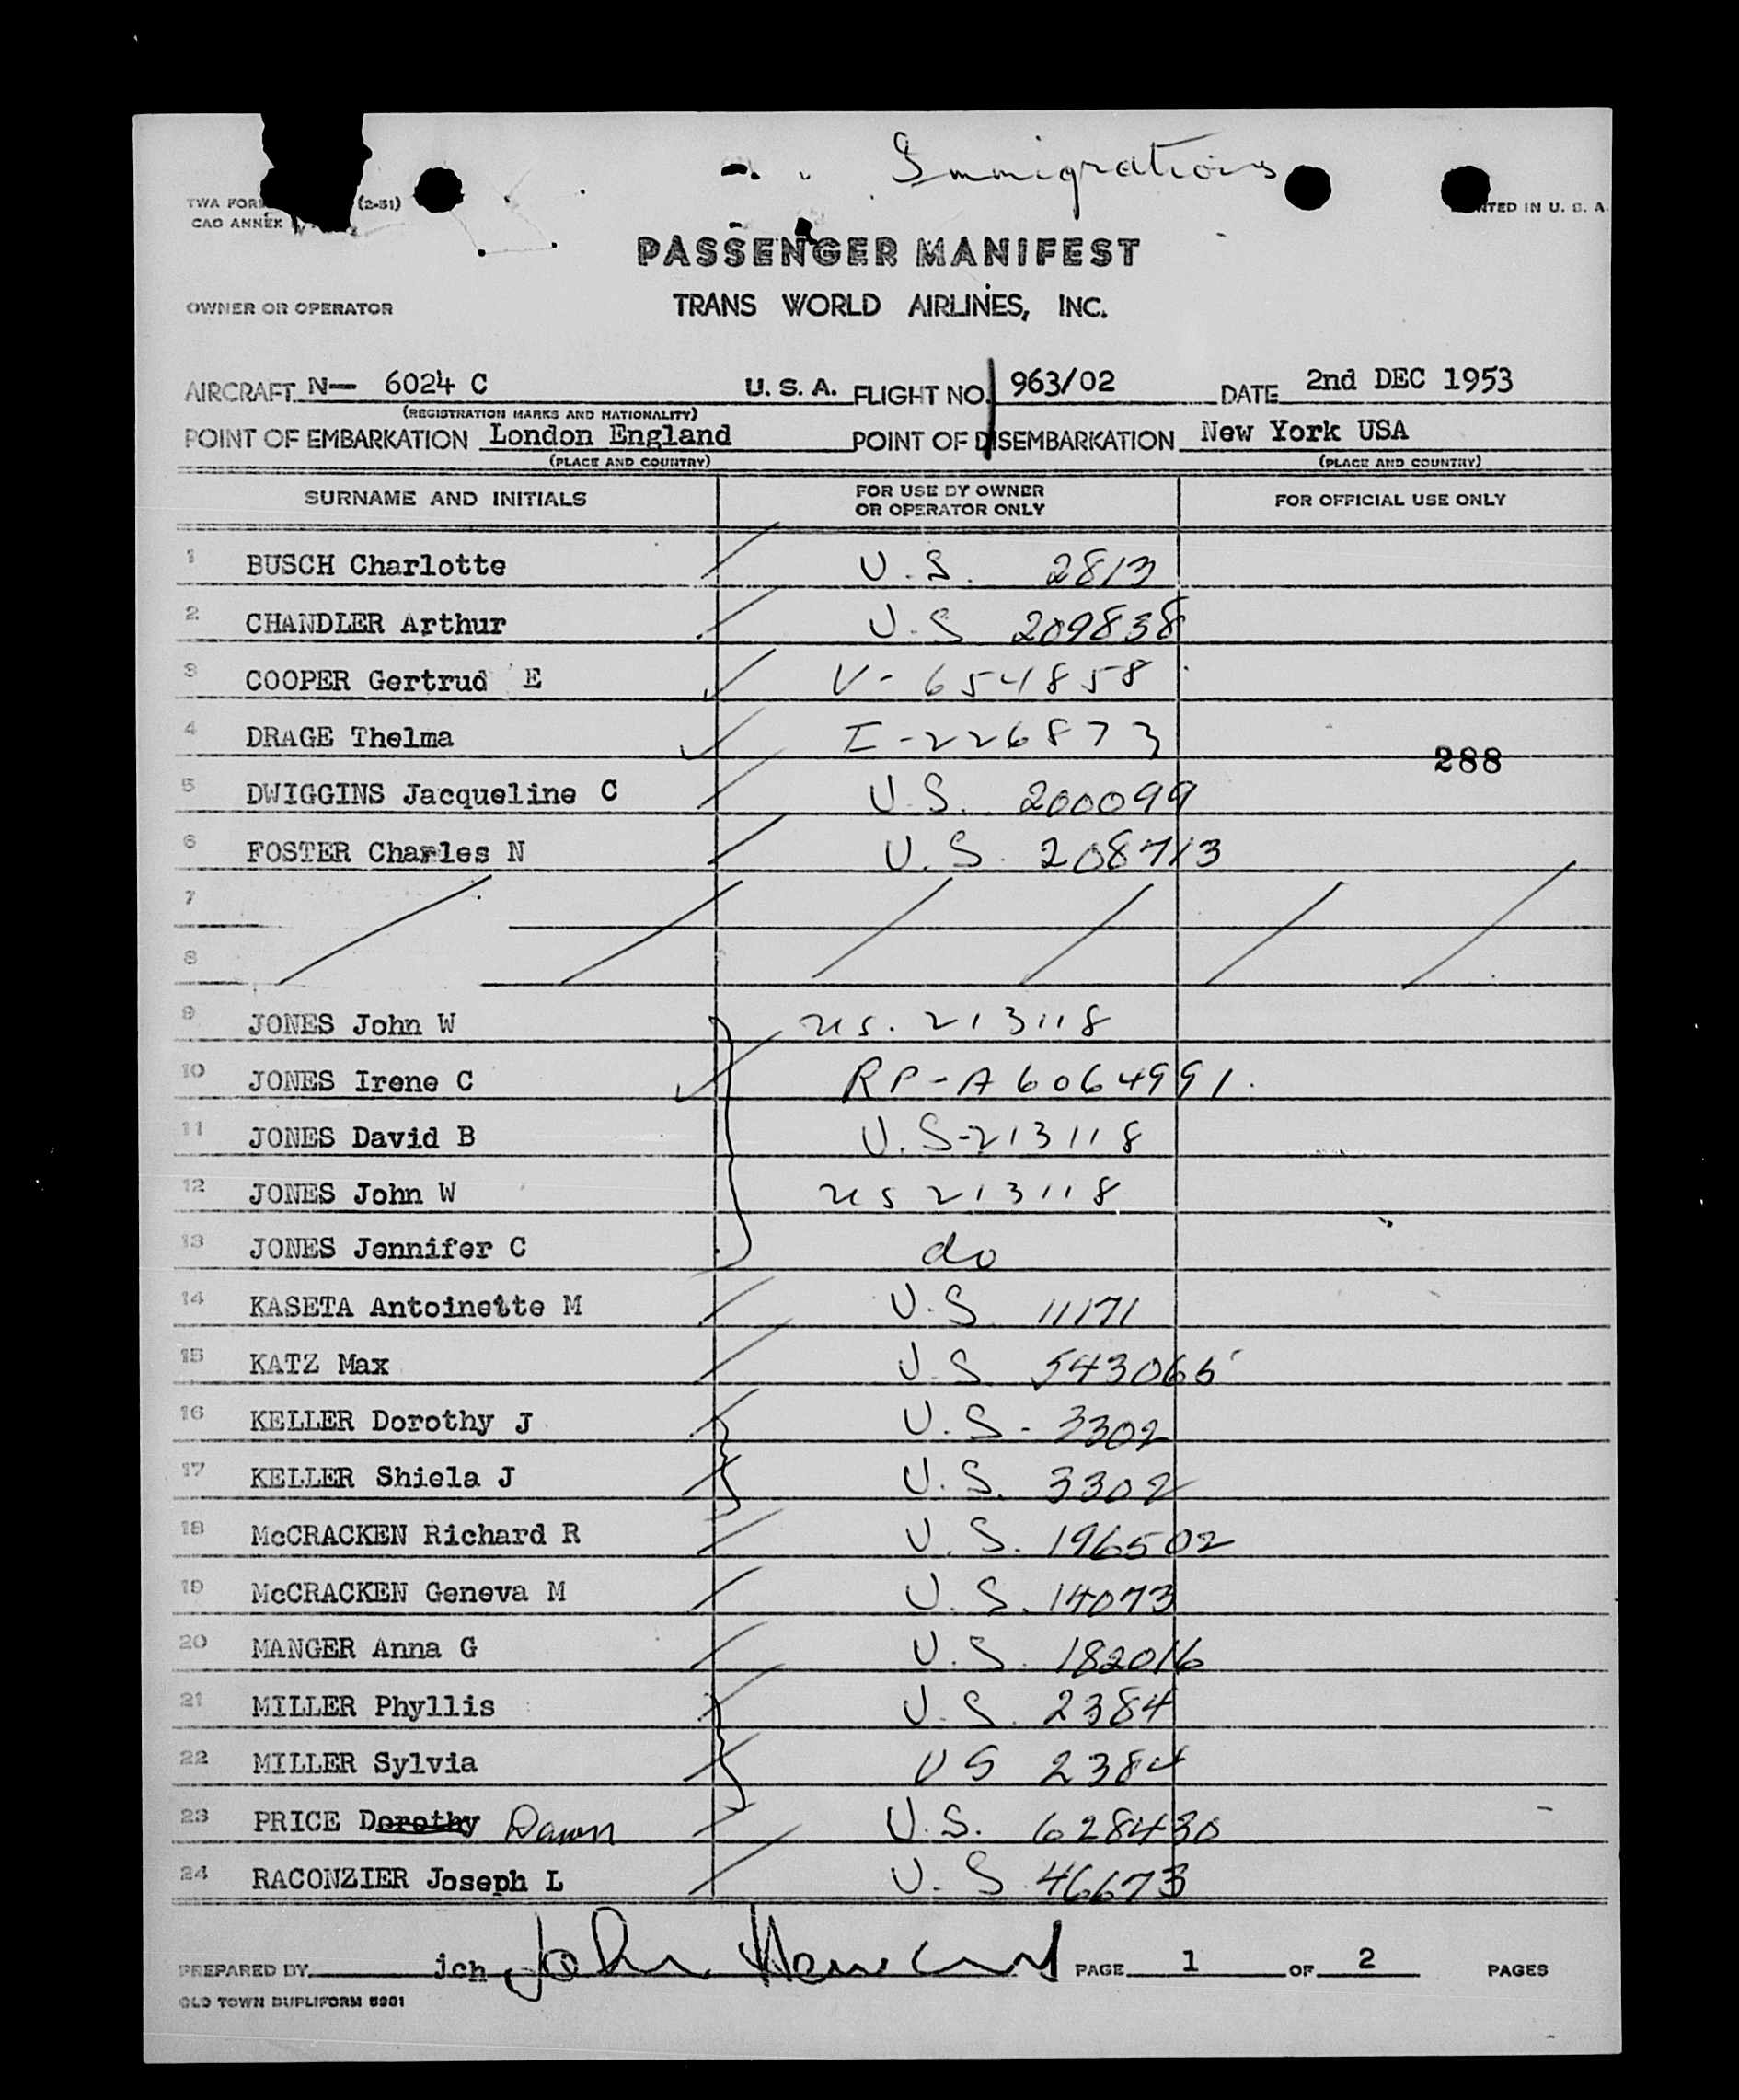 Immigrations
TWA FOR (2-51)
CAO ANNEX
NTED IN U. S. A.
PASSENGER MANIFEST
OWNER OR OPERATOR
TRANS WORLD AIRLINES, INC.
AIRCRAFT N— 6024 C U. S. A. FLIGHT NO. 963/02 DATE 2nd DEC 1953
(REGISTRATION MARKS AND NATIONALITY)
POINT OF EMBARKATION London England POINT OF DISEMBARKATION New York USA
(PLACE AND COUNTRY) (PLACE AND COUNTRY)
SURNAME AND INITIALS FOR USE BY OWNER OR OPERATOR ONLY FOR OFFICIAL USE ONLY
1 BUSCH Charlotte U.S. 2813
2 CHANDLER Arthur U.S 209838
3 COOPER Gertrud E V-654858
4 DRAGE Thelma I-226873
288
5 DWIGGINS Jacqueline C U.S. 200099
6 FOSTER Charles N U.S. 208713
7
8
9 JONES John W us. 213118
10 JONES Irene C RP-A6064991.
11 JONES David B U.S-213118
12 JONES John W us 213118
13 JONES Jennifer C do
14 KASETA Antoinette M U.S 11171
15 KATZ Max U.S 543065
16 KELLER Dorothy J U.S- 3302
17 KELLER Shiela J U.S. 3302
18 McCRACKEN Richard R U.S. 196502
19 McCRACKEN Geneva M U.S. 14073
20 MANGER Anna G U.S. 182016
21 MILLER Phyllis U.S. 2384
22 MILLER Sylvia US 2384
23 PRICE Dorothy Dawn U.S. 628430
24 RACONZIER Joseph L U.S 46673
PREPARED BY jch John PAGE 1 OF 2 PAGES
OLD TOWN DUPLIFORM 5901